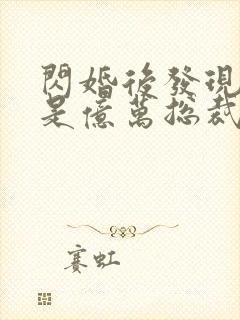 閃婚後發現
是億萬總裁
賽虹